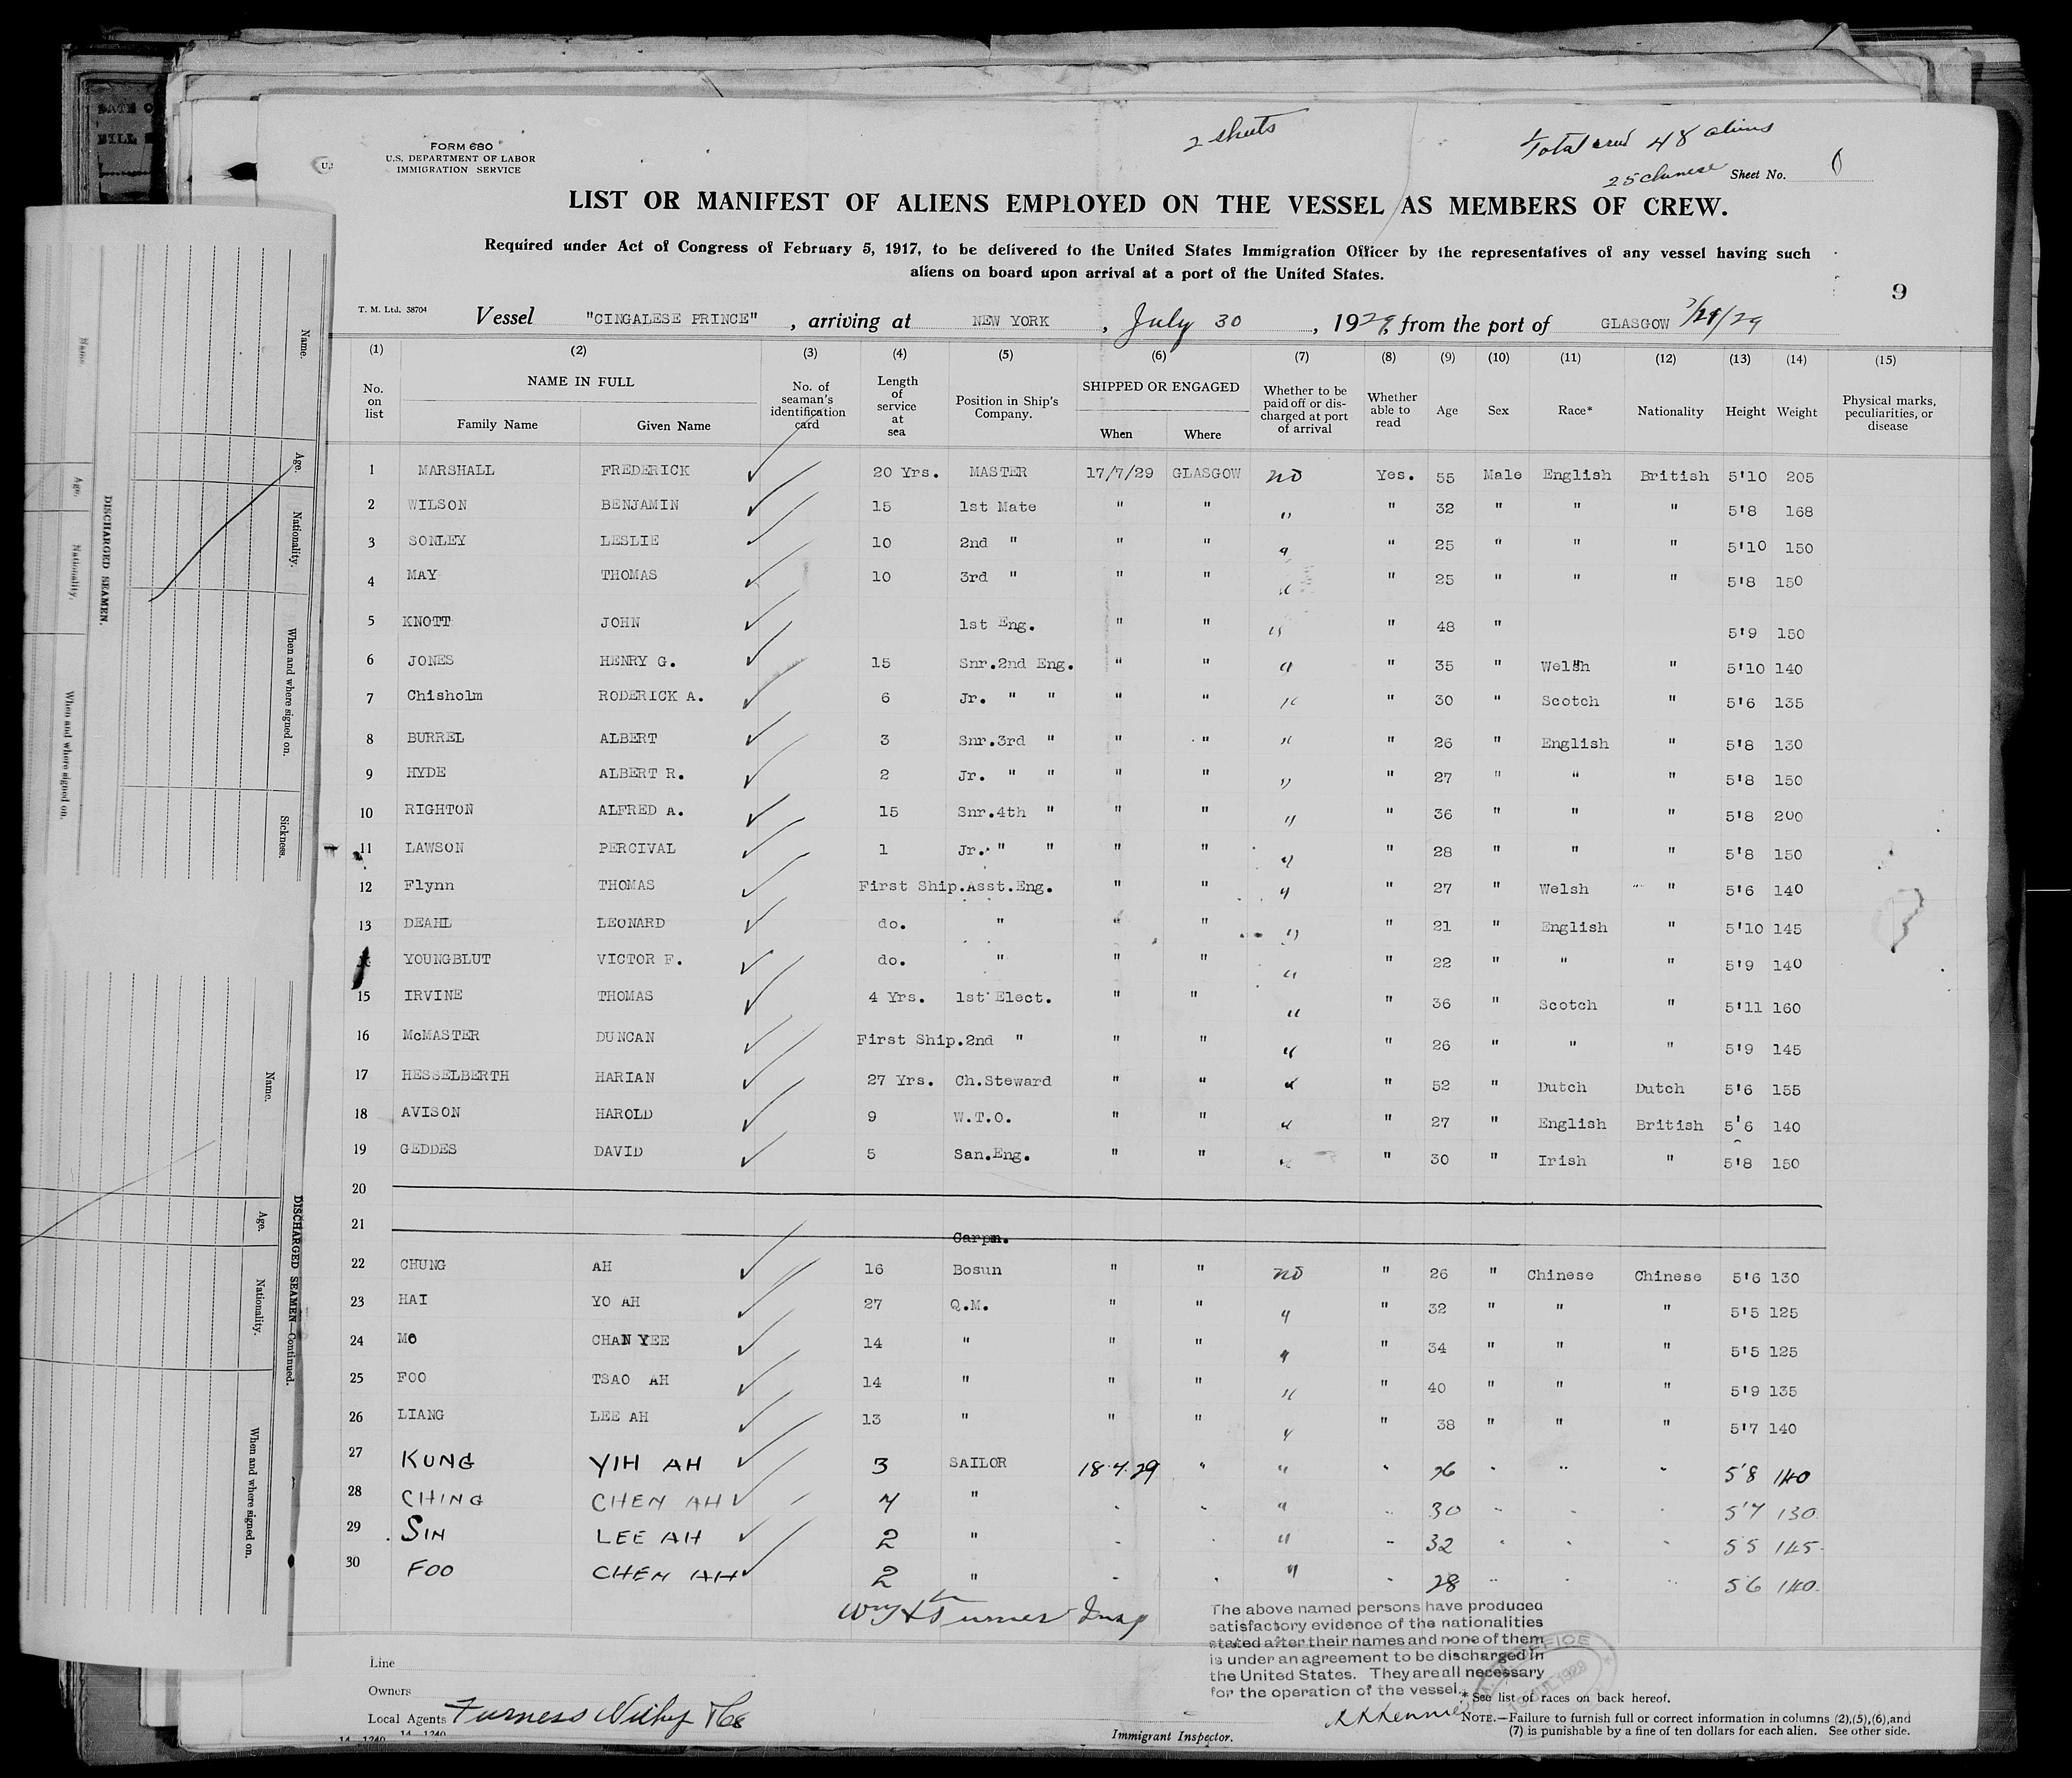 2 sheets
Total crew 48 aliens
25 Chinese Sheet No.
FORM 680
U.S. DEPARTMENT OF LABOR
IMMIGRATION SERVICE
LIST OR MANIFEST OF ALIENS EMPLOYED ON THE VESSEL AS MEMBERS OF CREW.
Required under Act of Congress of February 5, 1917, to be delivered to the United States Immigration Officer by the representatives of any vessel having such
aliens on board upon arrival at a port of the United States.
9
T. M. Ltd. 38704 Vessel "CINGALESE PRINCE", arriving at NEW YORK, July 30, 1929, from the port of GLASGOW
(1) (2) (3) (4) (5) (6) (7) (8) (9) (10) (11) (12) (13) (14) (15)
No. on list NAME IN FULL Family Name Given Name No. of seaman's identification card Length of service at sea Position in Ship's Company. SHIPPED OR ENGAGED When Where Whether to be paid off or discharged at port of arrival Whether able to read Age Sex Race* Nationality Height Weight Physical marks, peculiarities, or disease
1 MARSHALL FREDERICK 20 Yrs. MASTER 17/7/29 GLASGOW no Yes. 55 Male English British 5'10 205
2 WILSON BENJAMIN 15 1st Mate " " " " 32 " " " 5'8 168
3 SONLEY LESLIE 10 2nd " " " " " 25 " " " 5'10 150
4 MAY THOMAS 10 3rd " " " " " 25 " " " 5'8 150
5 KNOTT JOHN 1st Eng. " " " " 48 " 5'9 150
6 JONES HENRY G. 15 Snr.2nd Eng. " " " " 35 " Welsh " 5'10 140
7 Chisholm RODERICK A. 6 Jr. " " " " " " 30 " Scotch " 5'6 135
8 BURREL ALBERT 3 Snr.3rd " " " " " 26 " English " 5'8 130
9 HYDE ALBERT R. 2 Jr. " " " " " " 27 " " " 5'8 150
10 RIGHTON ALFRED A. 15 Snr.4th " " " " " 36 " " " 5'8 200
11 LAWSON PERCIVAL 1 Jr. " " " " " " 28 " " " 5'8 150
12 Flynn THOMAS First Ship.Asst.Eng. " " " " 27 " Welsh " 5'6 140
13 DEAHL LEONARD do. " " " " " 21 " English " 5'10 145
YOUNGBLUT VICTOR F. do. " " " " " 22 " " " 5'9 140
15 IRVINE THOMAS 4 Yrs. 1st Elect. " " " " 36 " Scotch " 5'11 160
16 McMASTER DUNCAN First Ship.2nd " " " " " 26 " " " 5'9 145
17 HESSELBERTH HARIAN 27 Yrs. Ch.Steward " " " " 52 " Dutch Dutch 5'6 155
18 AVISON HAROLD 9 W.T.O. " " " " 27 " English British 5'6 140
19 GEDDES DAVID 5 San.Eng. " " " " 30 " Irish " 5'8 150
20
21 Carpn.
22 CHUNG AH 16 Bosun " " no " 26 " Chinese Chinese 5'6 130
23 HAI YO AH 27 Q.M. " " " " 32 " " " 5'5 125
24 MO CHAN YEE 14 " " " " " 34 " " " 5'5 125
25 FOO TSAO AH 14 " " " " " 40 " " " 5'9 135
26 LIANG LEE AH 13 " " " " " 38 " " " 5'7 140
27 KUNG YIH AH 3 SAILOR 18.7.29 " " " 26 " " " 5'8 140
28 CHING CHEN AH 7 " " " " " 30 " " " 5'7 130
29 SIN LEE AH 2 " " " " " 32 " " " 5 5 145
30 FOO CHEN AH 2 " " " " " 28 " " " 5 6 140
Turner Insp
The above named persons have produced
satisfactory evidence of the nationalities
stated after their names and none of them
is under an agreement to be discharged in
the United States. They are all necessary
for the operation of the vessel.
Line
Owners
Local Agents Furness Withy & Co
14—1240
Immigrant Inspector.
* See list of races on back hereof.
NOTE.—Failure to furnish full or correct information in columns (2),(5),(6),and
(7) is punishable by a fine of ten dollars for each alien. See other side.
DISCHARGED SEAMEN.
Name. Age. Nationality. When and where signed on. Sickness.
Name Age. Nationality. When and where signed on.
DISCHARGED SEAMEN—Continued.
Name. Age. Nationality. When and where signed on.